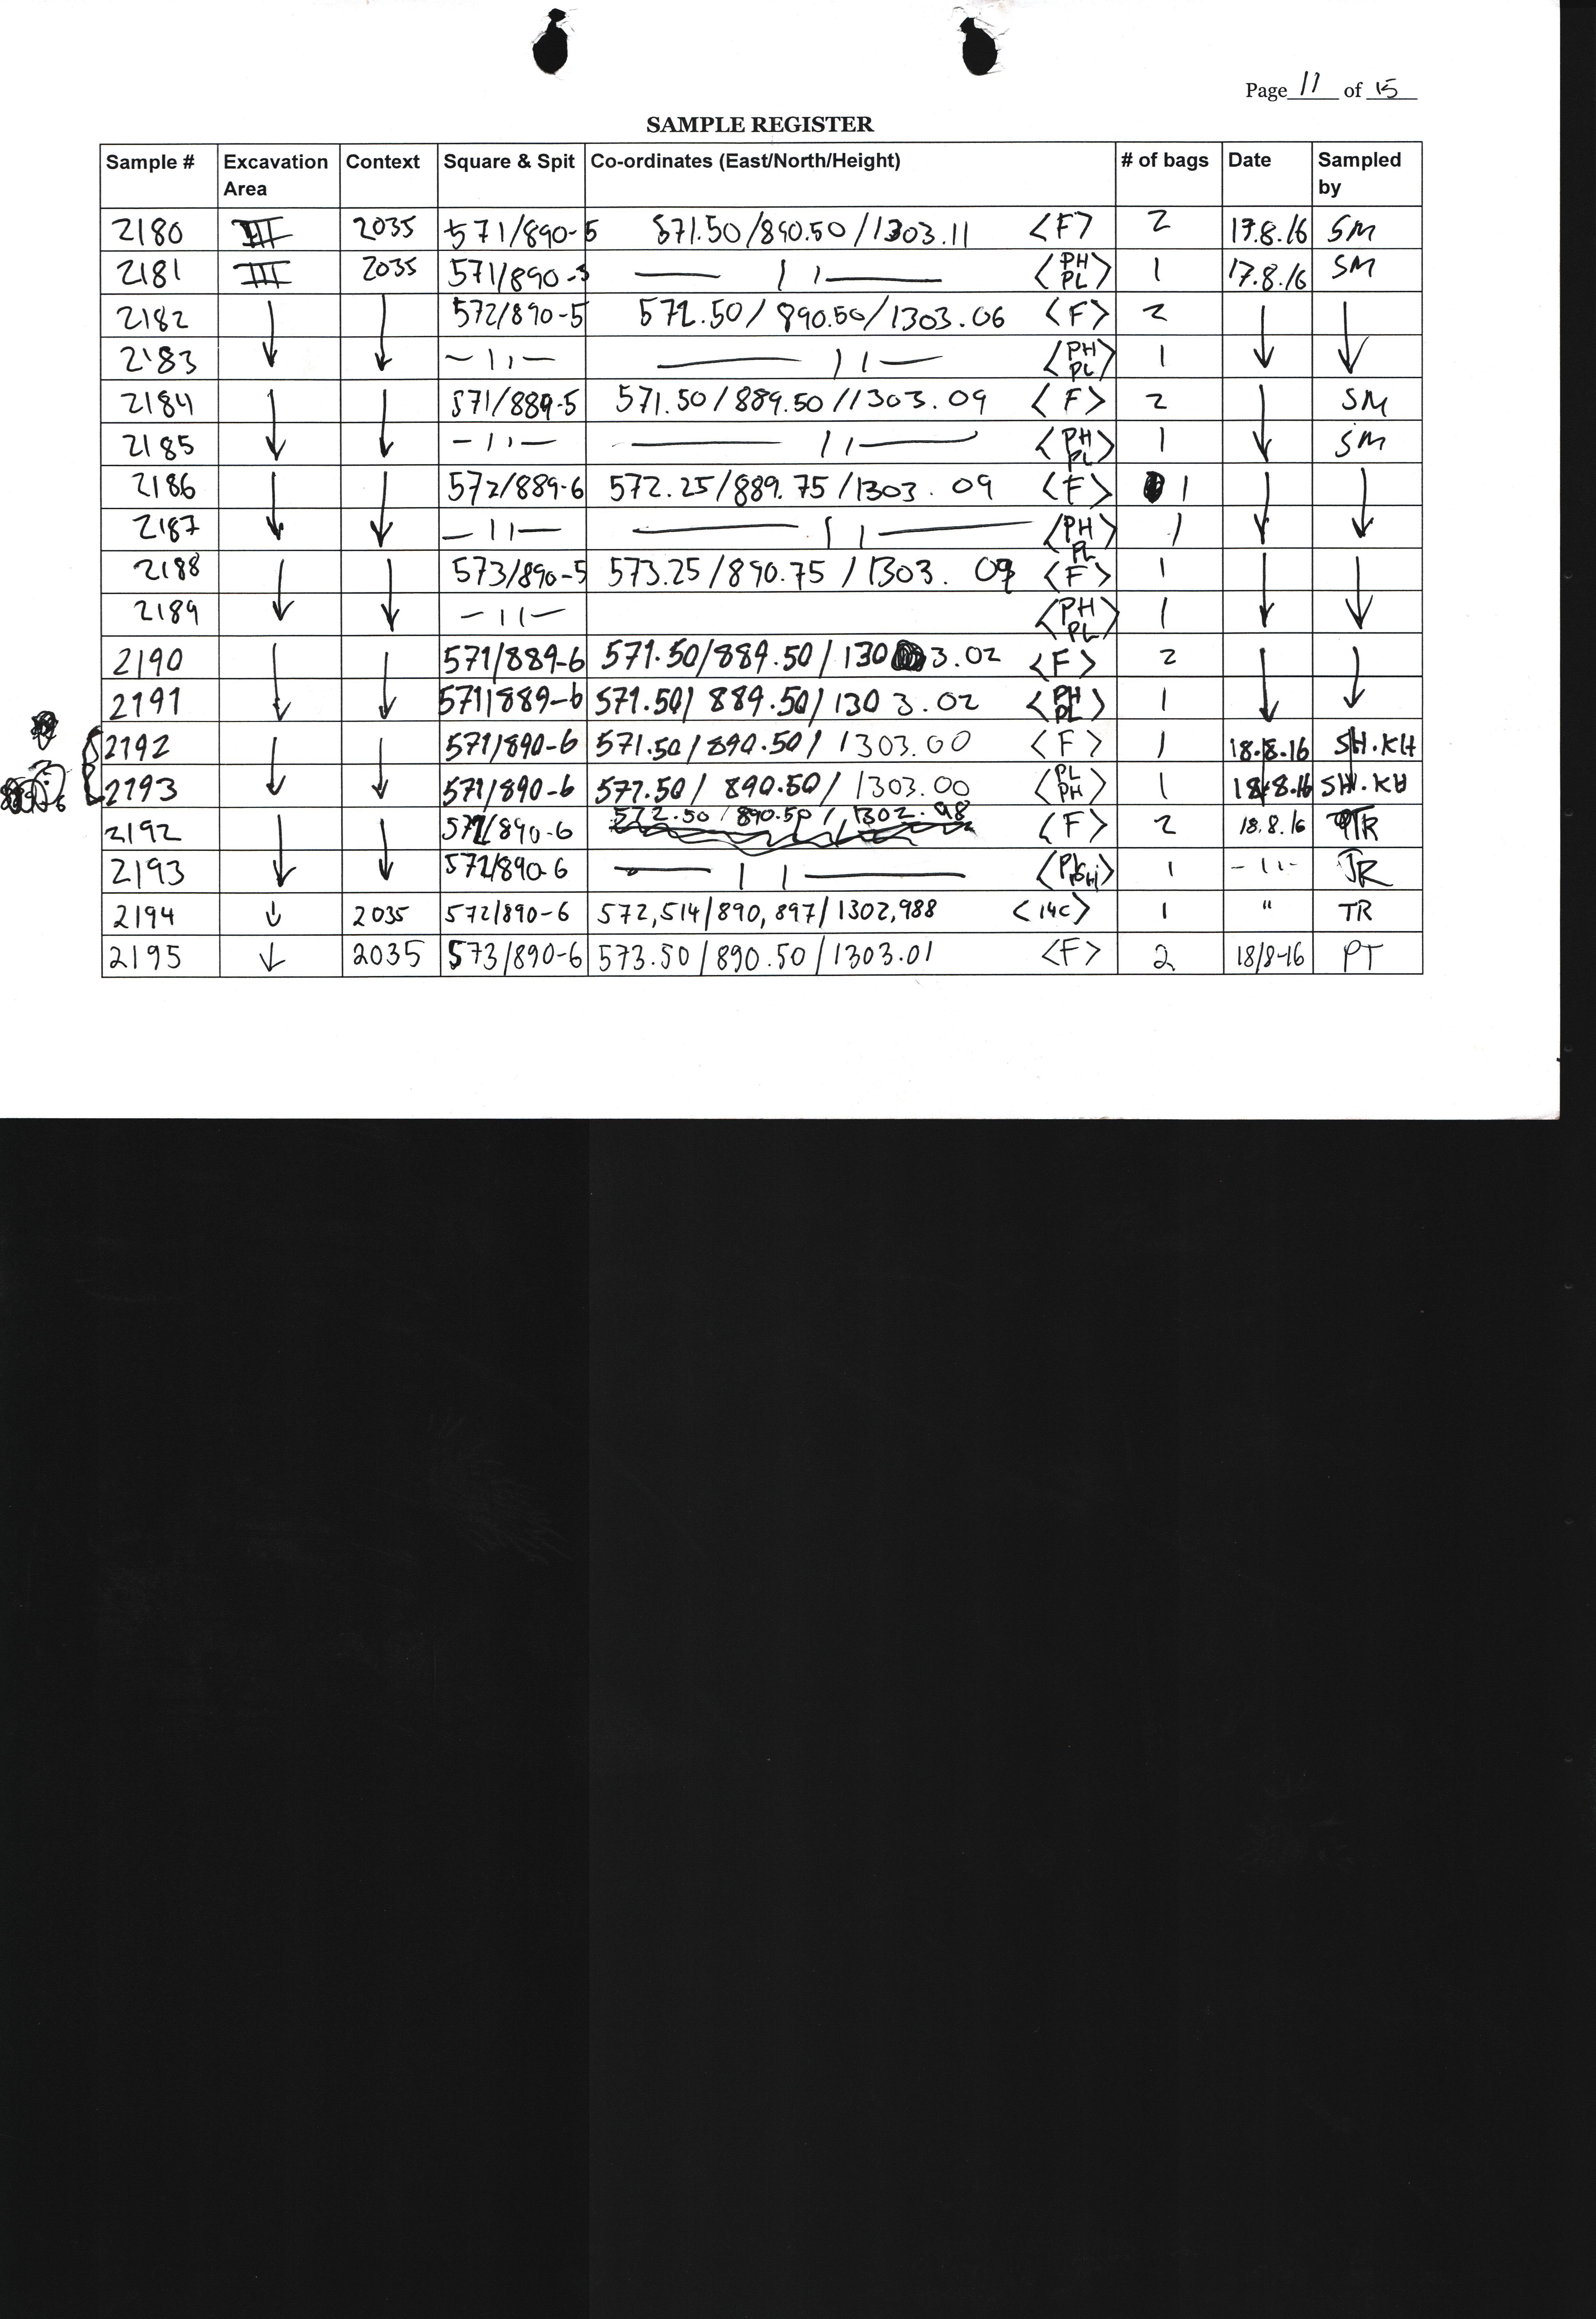 Page 11 of 15
SAMPLE REGISTER
Sample # Excavation Area Context Square & Spit Co-ordinates (East/North/Height) # of bags Date Sampled by
2180 III 2035 571/890-5 571.50/890.50/1303.11 <F> 2 17.8.16 SM
2181 III 2035 571/890-5 — 11 — <PH PL> 1 17.8.16 SM
2182 ↓ ↓ 572/890-5 572.50/890.50/1303.06 <F> 2 ↓ ↓
2183 -11- — 11 — <PH PL> 1
2184 ↓ ↓ 571/889-5 571.50/889.50/1303.09 <F> 2 ↓ SM
2185 -11- — 11 — <PH PL> 1 SM
2186 ↓ ↓ 572/889-6 572.25/889.75/1303.09 <F> 1 ↓ ↓
2187 -11- — 11 — <PH PL> 1
2188 ↓ ↓ 573/890-5 573.25/890.75/1303.09 <F> 1 ↓ ↓
2189 -11- <PH PL> 1
2190 ↓ ↓ 571/889-6 571.50/889.50/1303.02 <F> 2 ↓ ↓
2191 571/889-6 571.50/889.50/1303.02 <PH PL> 1
2192 ↓ ↓ 571/890-6 571.50/890.50/1303.00 <F> 1 18.8.16 SH.KH
2193 571/890-6 571.50/890.50/1303.00 <PL PH> 1 18.8.16 SH.KH
2192 ↓ ↓ 572/890-6 572.50/890.50/1302.98 <F> 2 18.8.16 TR
2193 572/890-6 — 11 — 1 -11- TR
2194 ↓ 2035 572/890-6 572,514/890,897/1302,988 <14c> 1 " TR
2195 ↓ 2035 573/890-6 573.50/890.50/1303.01 <F> 2 18/8-16 PT